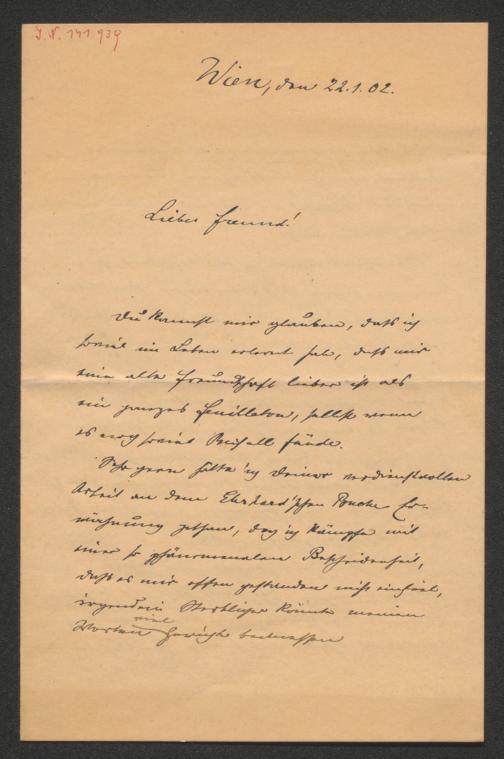 J.N. 141.939
Wien, den 22.1.02.
Lieber Freund!
Du kannst mir glauben, daß ich
soviel im Leben erlernt hab, daß mir
eine alte Freundschaft lieber ist als
ein ganzes Feuilleton, selbst wenn
es noch soviel Beifall fände.
Sehr gern hätte ich Deiner verdienstvollen
Arbeit an dem Ehrhard'schen Buche Er-
wähnung gethan, doch ich kämpfe mit
einer so phänomenalen Bescheidenheit,
daß es mir offen gestanden nicht einfiel,
irgendein Sterblicher könnte meinen
Worten viel Gewicht beimessen